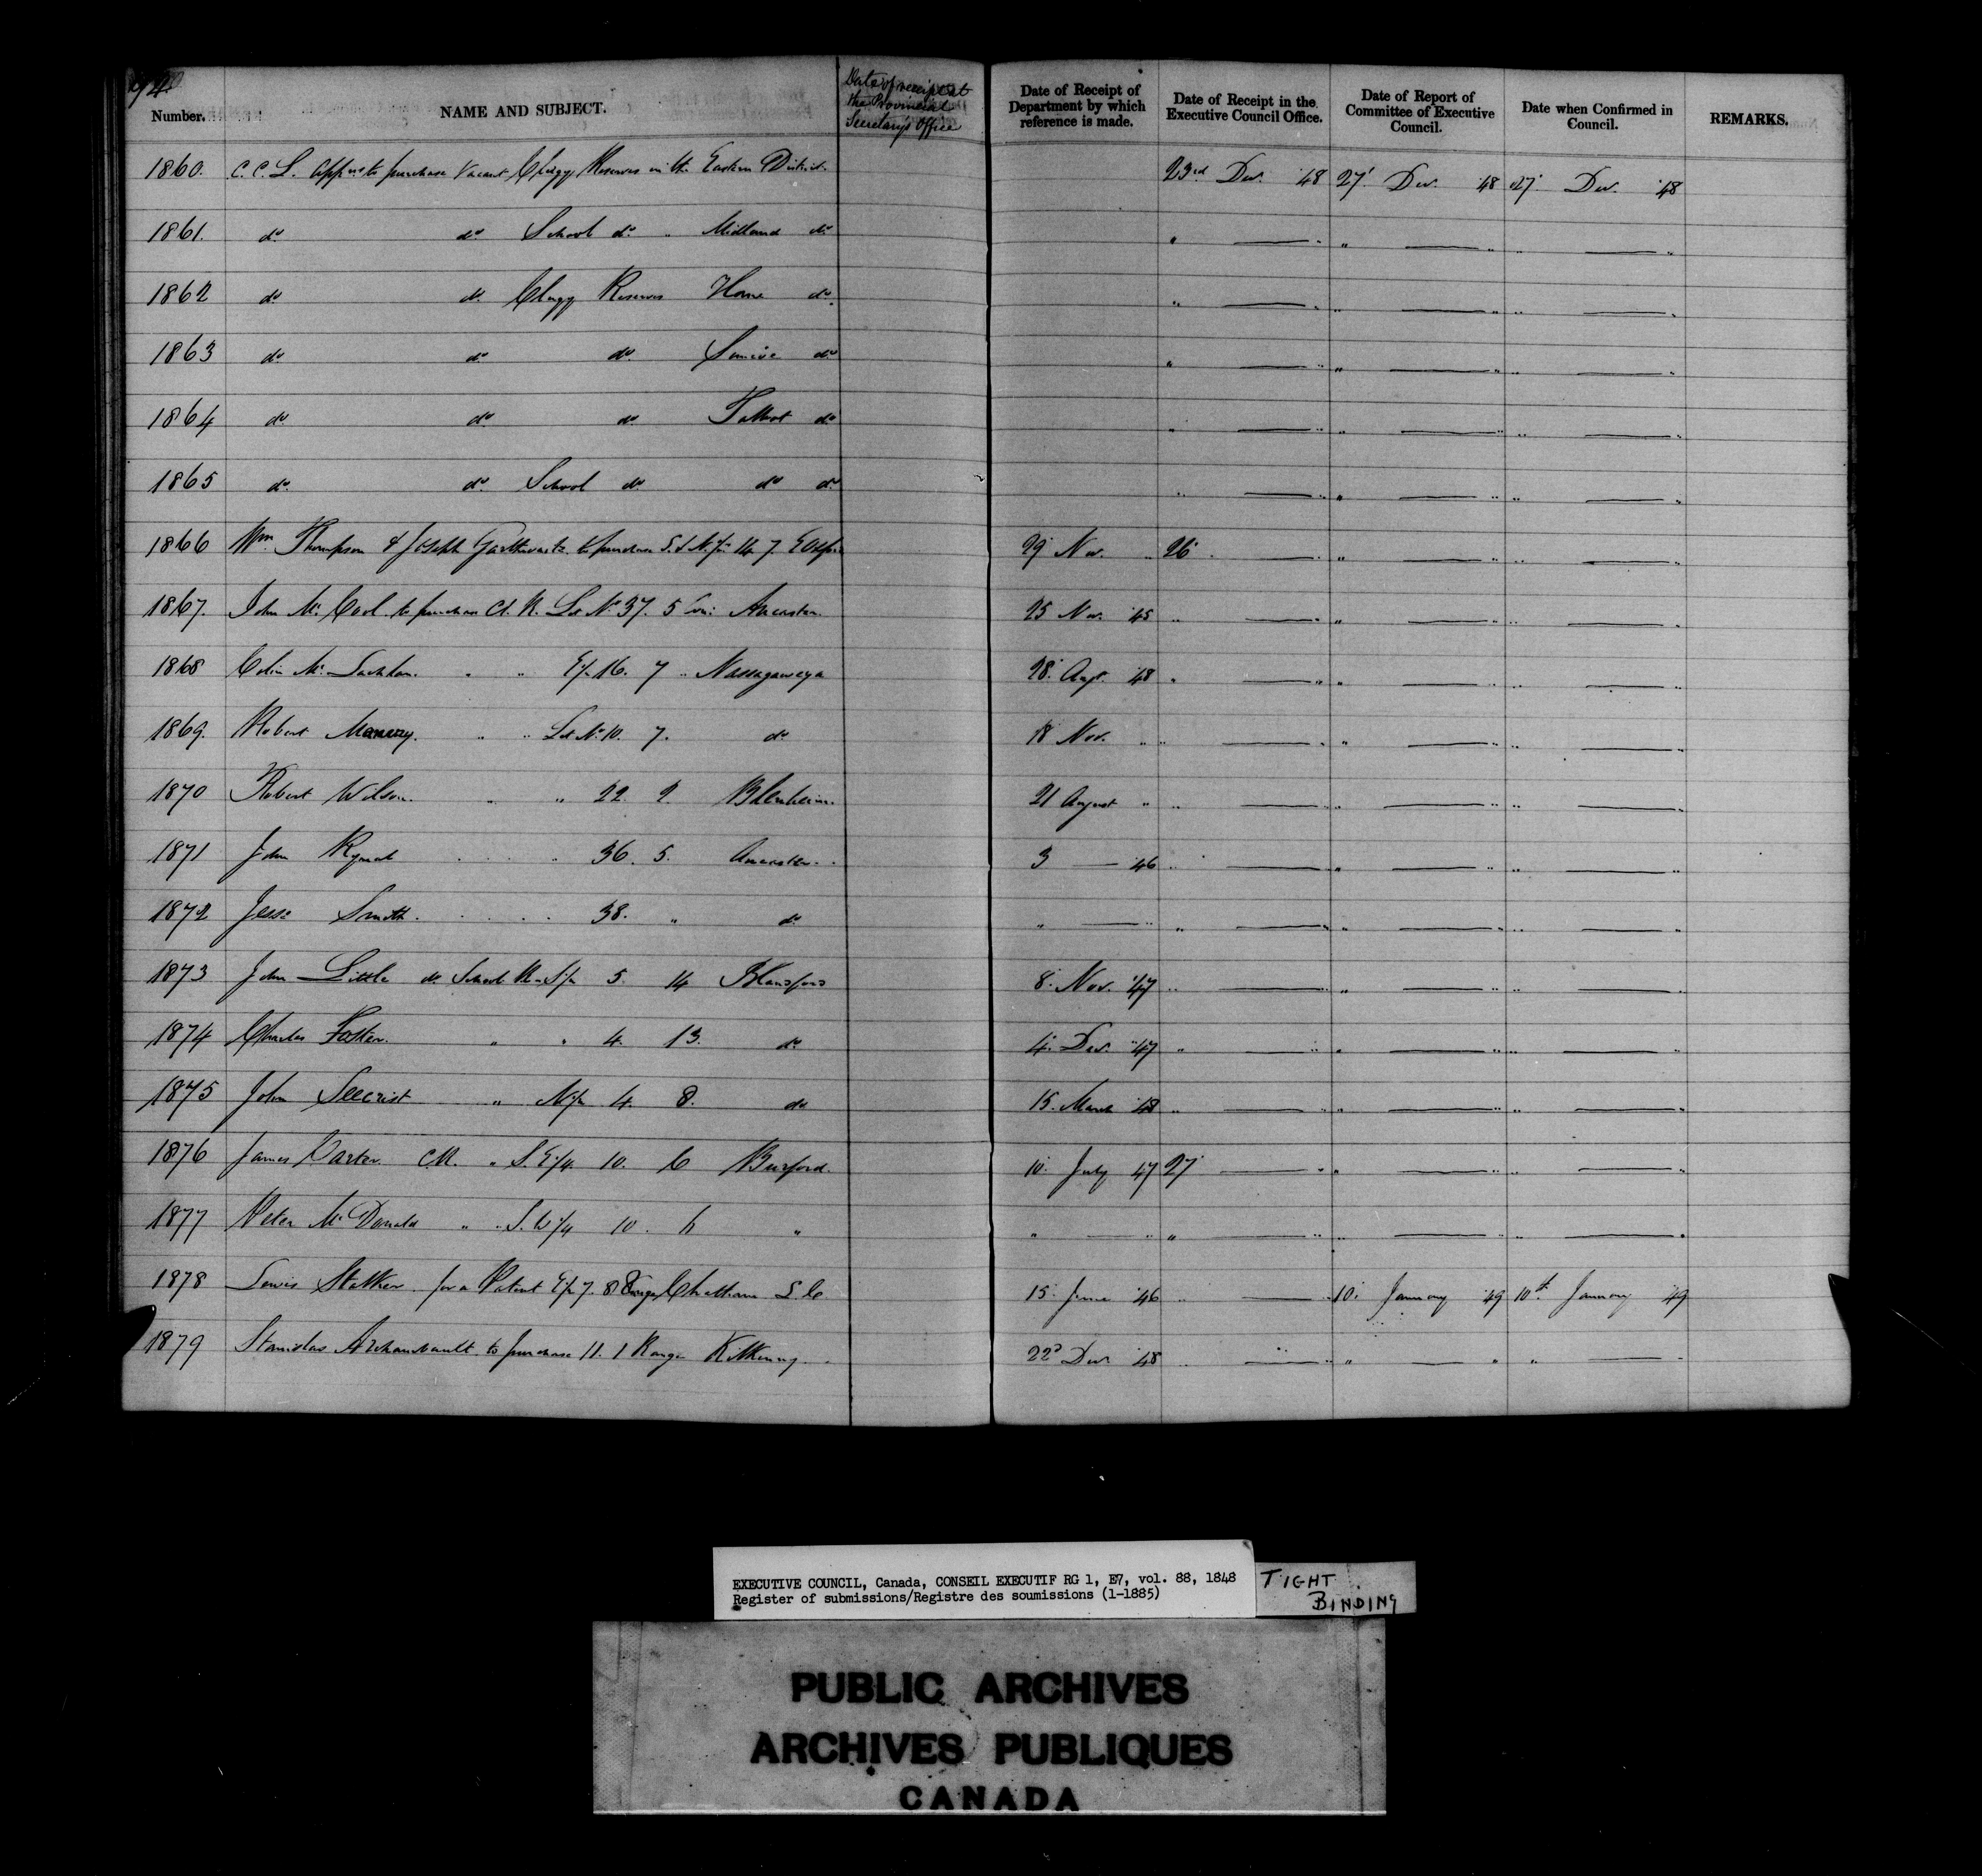 Number. NAME AND SUBJECT. Date of receipt at the Provincial Secretary's Office Date of Receipt of Department by which reference is made. Date of Receipt in the Executive Council Office. Date of Report of Committee of Executive Council. Date when Confirmed in Council. REMARKS.
1860. C.C.L. to purchase Vacant Clergy Reserves in the Eastern District. 23rd Dec. 48 27 Dec. 48 27 Dec. 48
1861. do do School do " Midland do " — " " — " " — "
1862 do do Clergy Reserves Home do. " — " " — " " — "
1863 do do do Simcoe do " — " " — " " — "
1864 do do do Talbot do " — " " — " " — "
1865 do. do. School do. do do " — " " — " " — "
1866 Wm Thompson & Joseph to purchase 14 7 29 Nov. " 26 — " " — " " — "
1867. John Mc Cool to purchase Cl. R. Lot No 37. 5 Con: Ancaster. 25 Nov. 45 " — " " — " " — "
1868 Colin Mc Lachlan. " " E½ 16. 7 " Nassagaweya 28. 48 " — " " — " " — "
1869. Robert " " Lot No 10. 7. do 18 Nov. " " — " " — " " — "
1870 Robert Wilson. " " 22. 2. Blenheim. 21 August " " — " " — " " — "
1871 John 36. 5. Ancaster. 3 — 46 " — " " — " " — "
1872 Jesse Smith. 38. " do " — " " — " " — " " — "
1873 John Little do School R. S½ 5. 14 Blandford 8. Nov. 47 " — " " — " " — "
1874 Charles Foster. " " 4. 13. do 4. Dec. 47 " — " " — " " — "
1875 John Seecrist " N½ 4. 8. do 15. March 48 " — " " — " " — "
1876 James Carter. CR. " S.E¼ 10. 6 Burford. 10. July 47 27 — " " — " " — "
1877 Peter Mc Donald " " S.W¼ 10. 6 " " — " " — " " — " " — "
1878 Lewis Stalker for a Patent E½ 7. 8 Range Chatham L.C 15. June 46 " — " 10. January 49 10th January 49
1879 Stanislas Archambault to purchase 11. 1 Range Kilkenny. 22d Dec 48 " — " " — " " — "
EXECUTIVE COUNCIL, Canada, CONSEIL EXECUTIF RG 1, E7, vol. 88, 1848
Register of submissions/Registre des soumissions (1-1885)
TIGHT
BINDING
PUBLIC ARCHIVES
ARCHIVES PUBLIQUES
CANADA